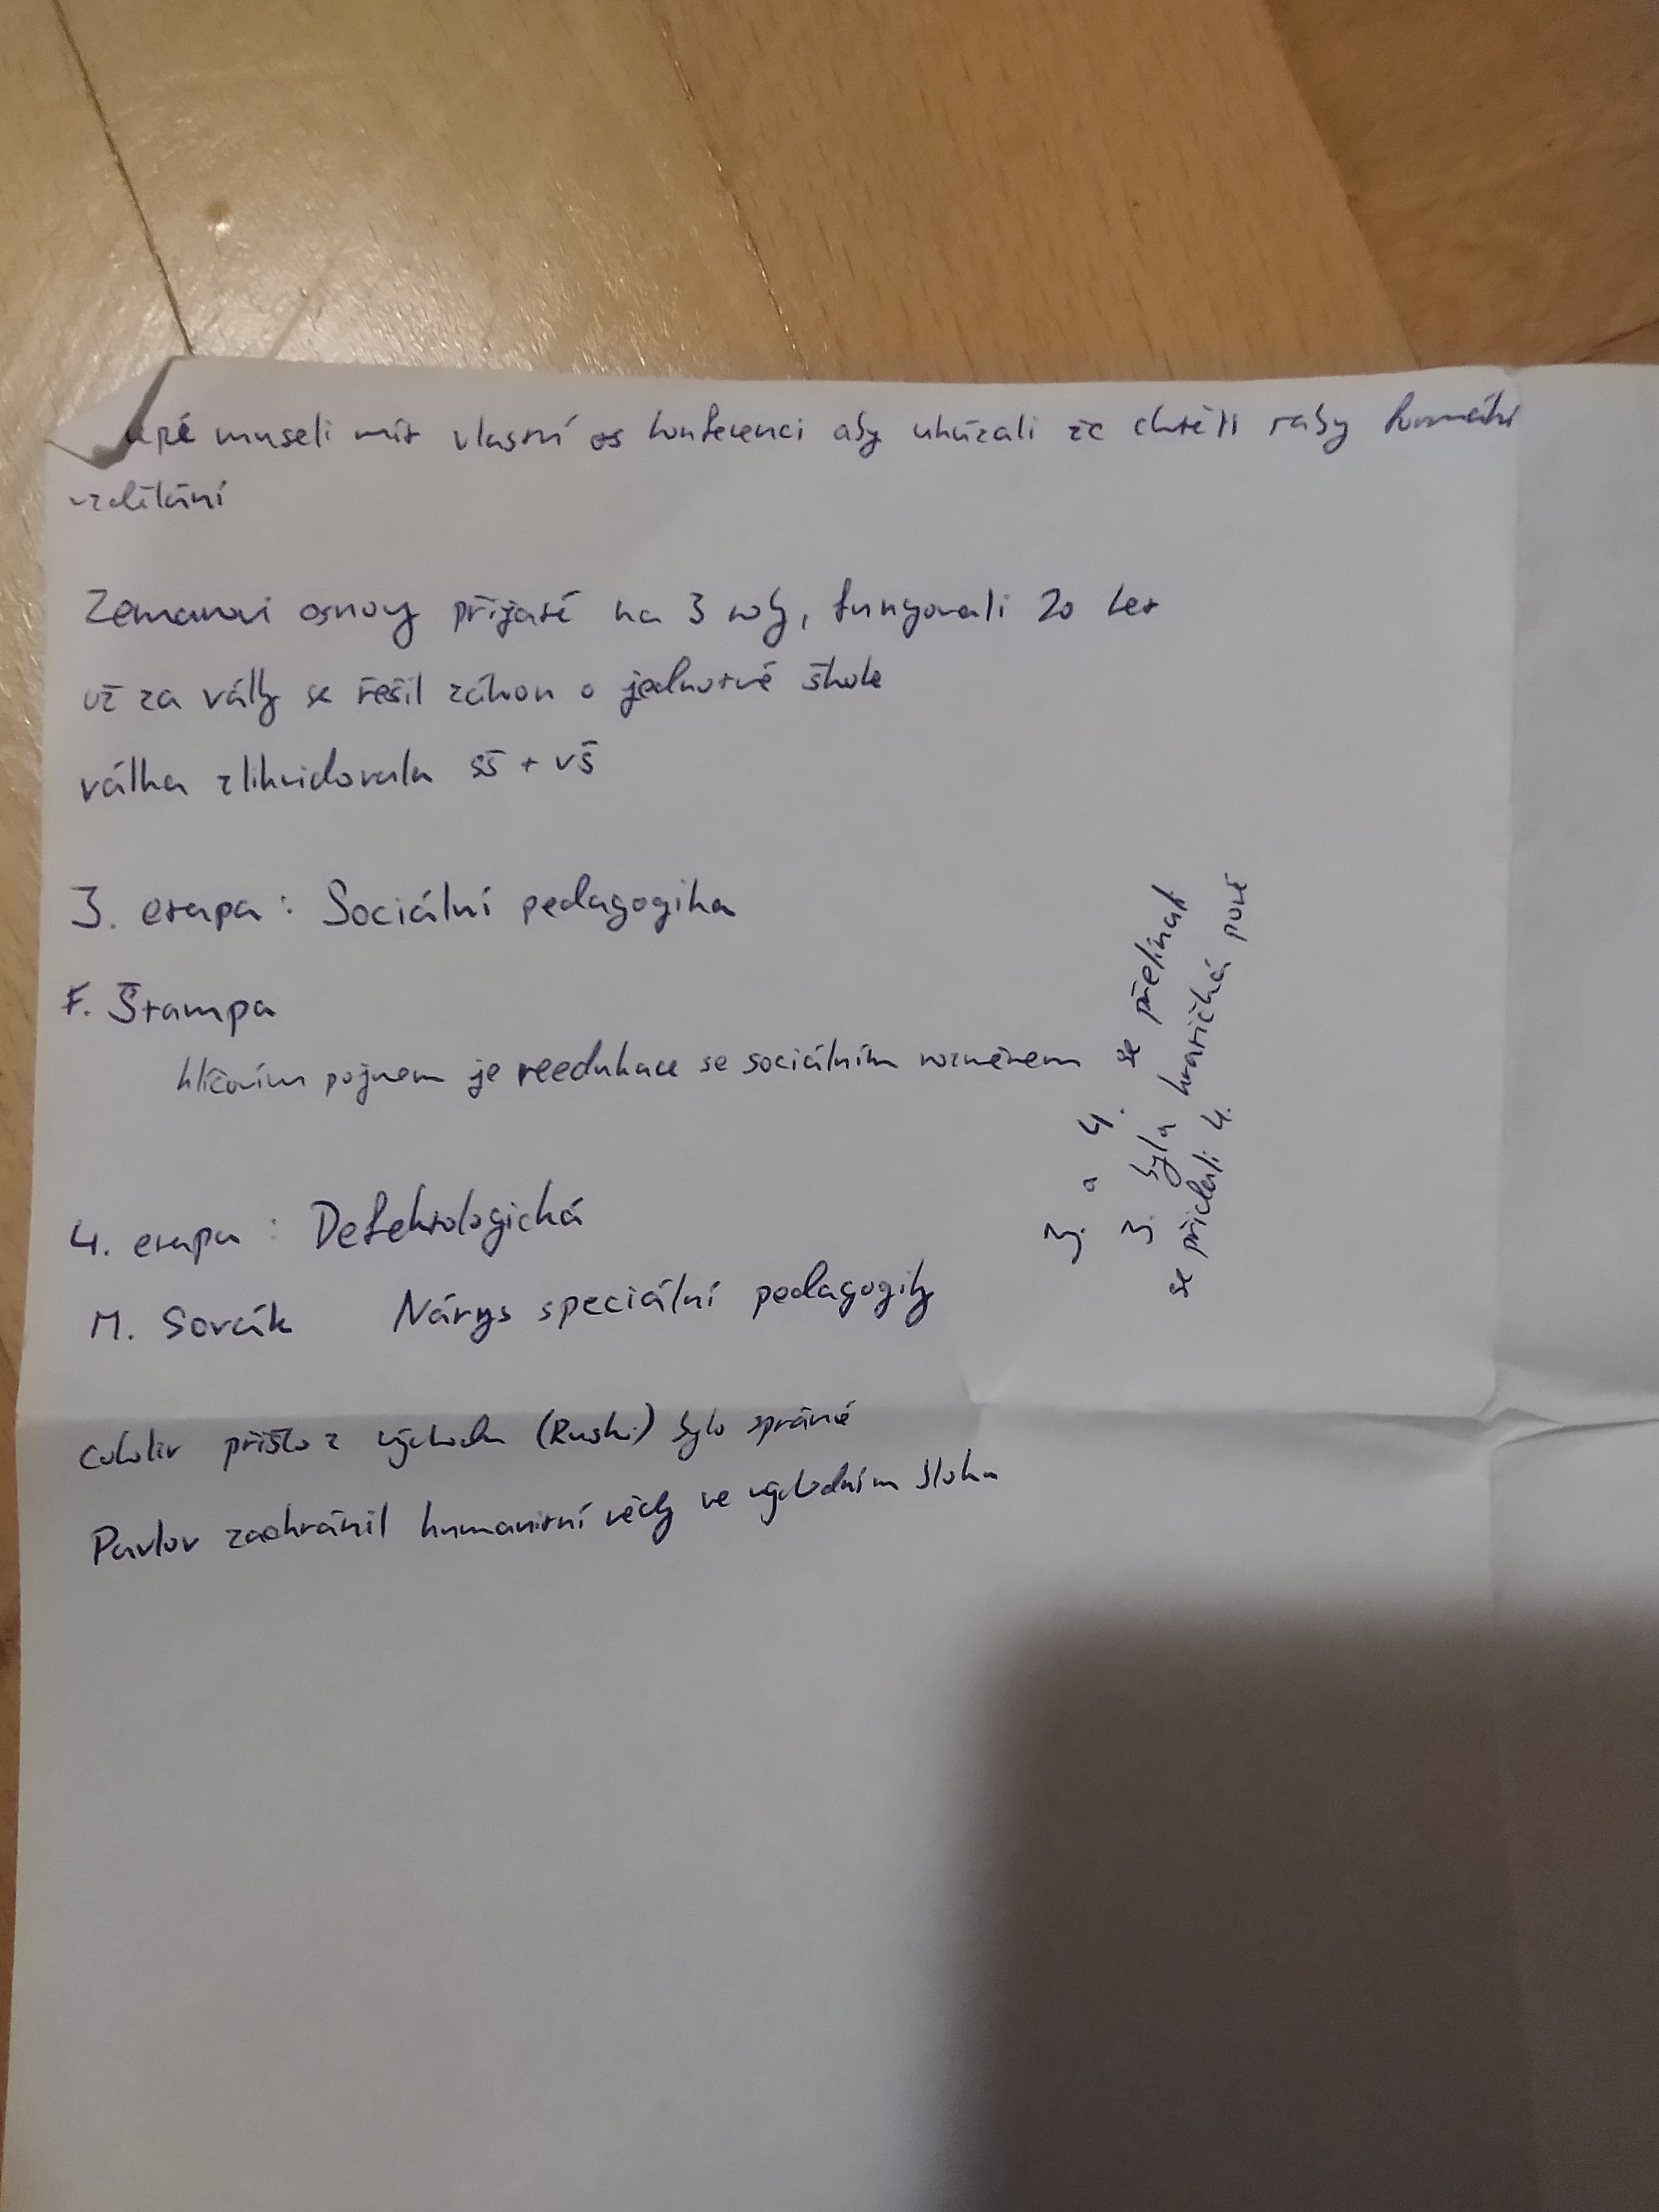 museli mít vlastní konferenci aby ukázali že chtěli taky formální
vzdělání
Zemanovi osnovy přijaté na 3 roky, fungovali 20 let
už za války se řešil zákon o jednotné škole
válka zlikvidovala SŠ + VŠ
3. etapa: Sociální pedagogika
F. Štampa
klíčovím pojmem je reedukace se sociálním rozměrem
3. a 4. se přelínali
3. byla kraťičká poté
se přidali 4.
4. etapa: Defektologická
M. Sovák Nárys speciální pedagogiky
cokoliv přišlo z východu (Rusko) bylo správné
Pavlov zachránil humanitní vědy ve východním bloku